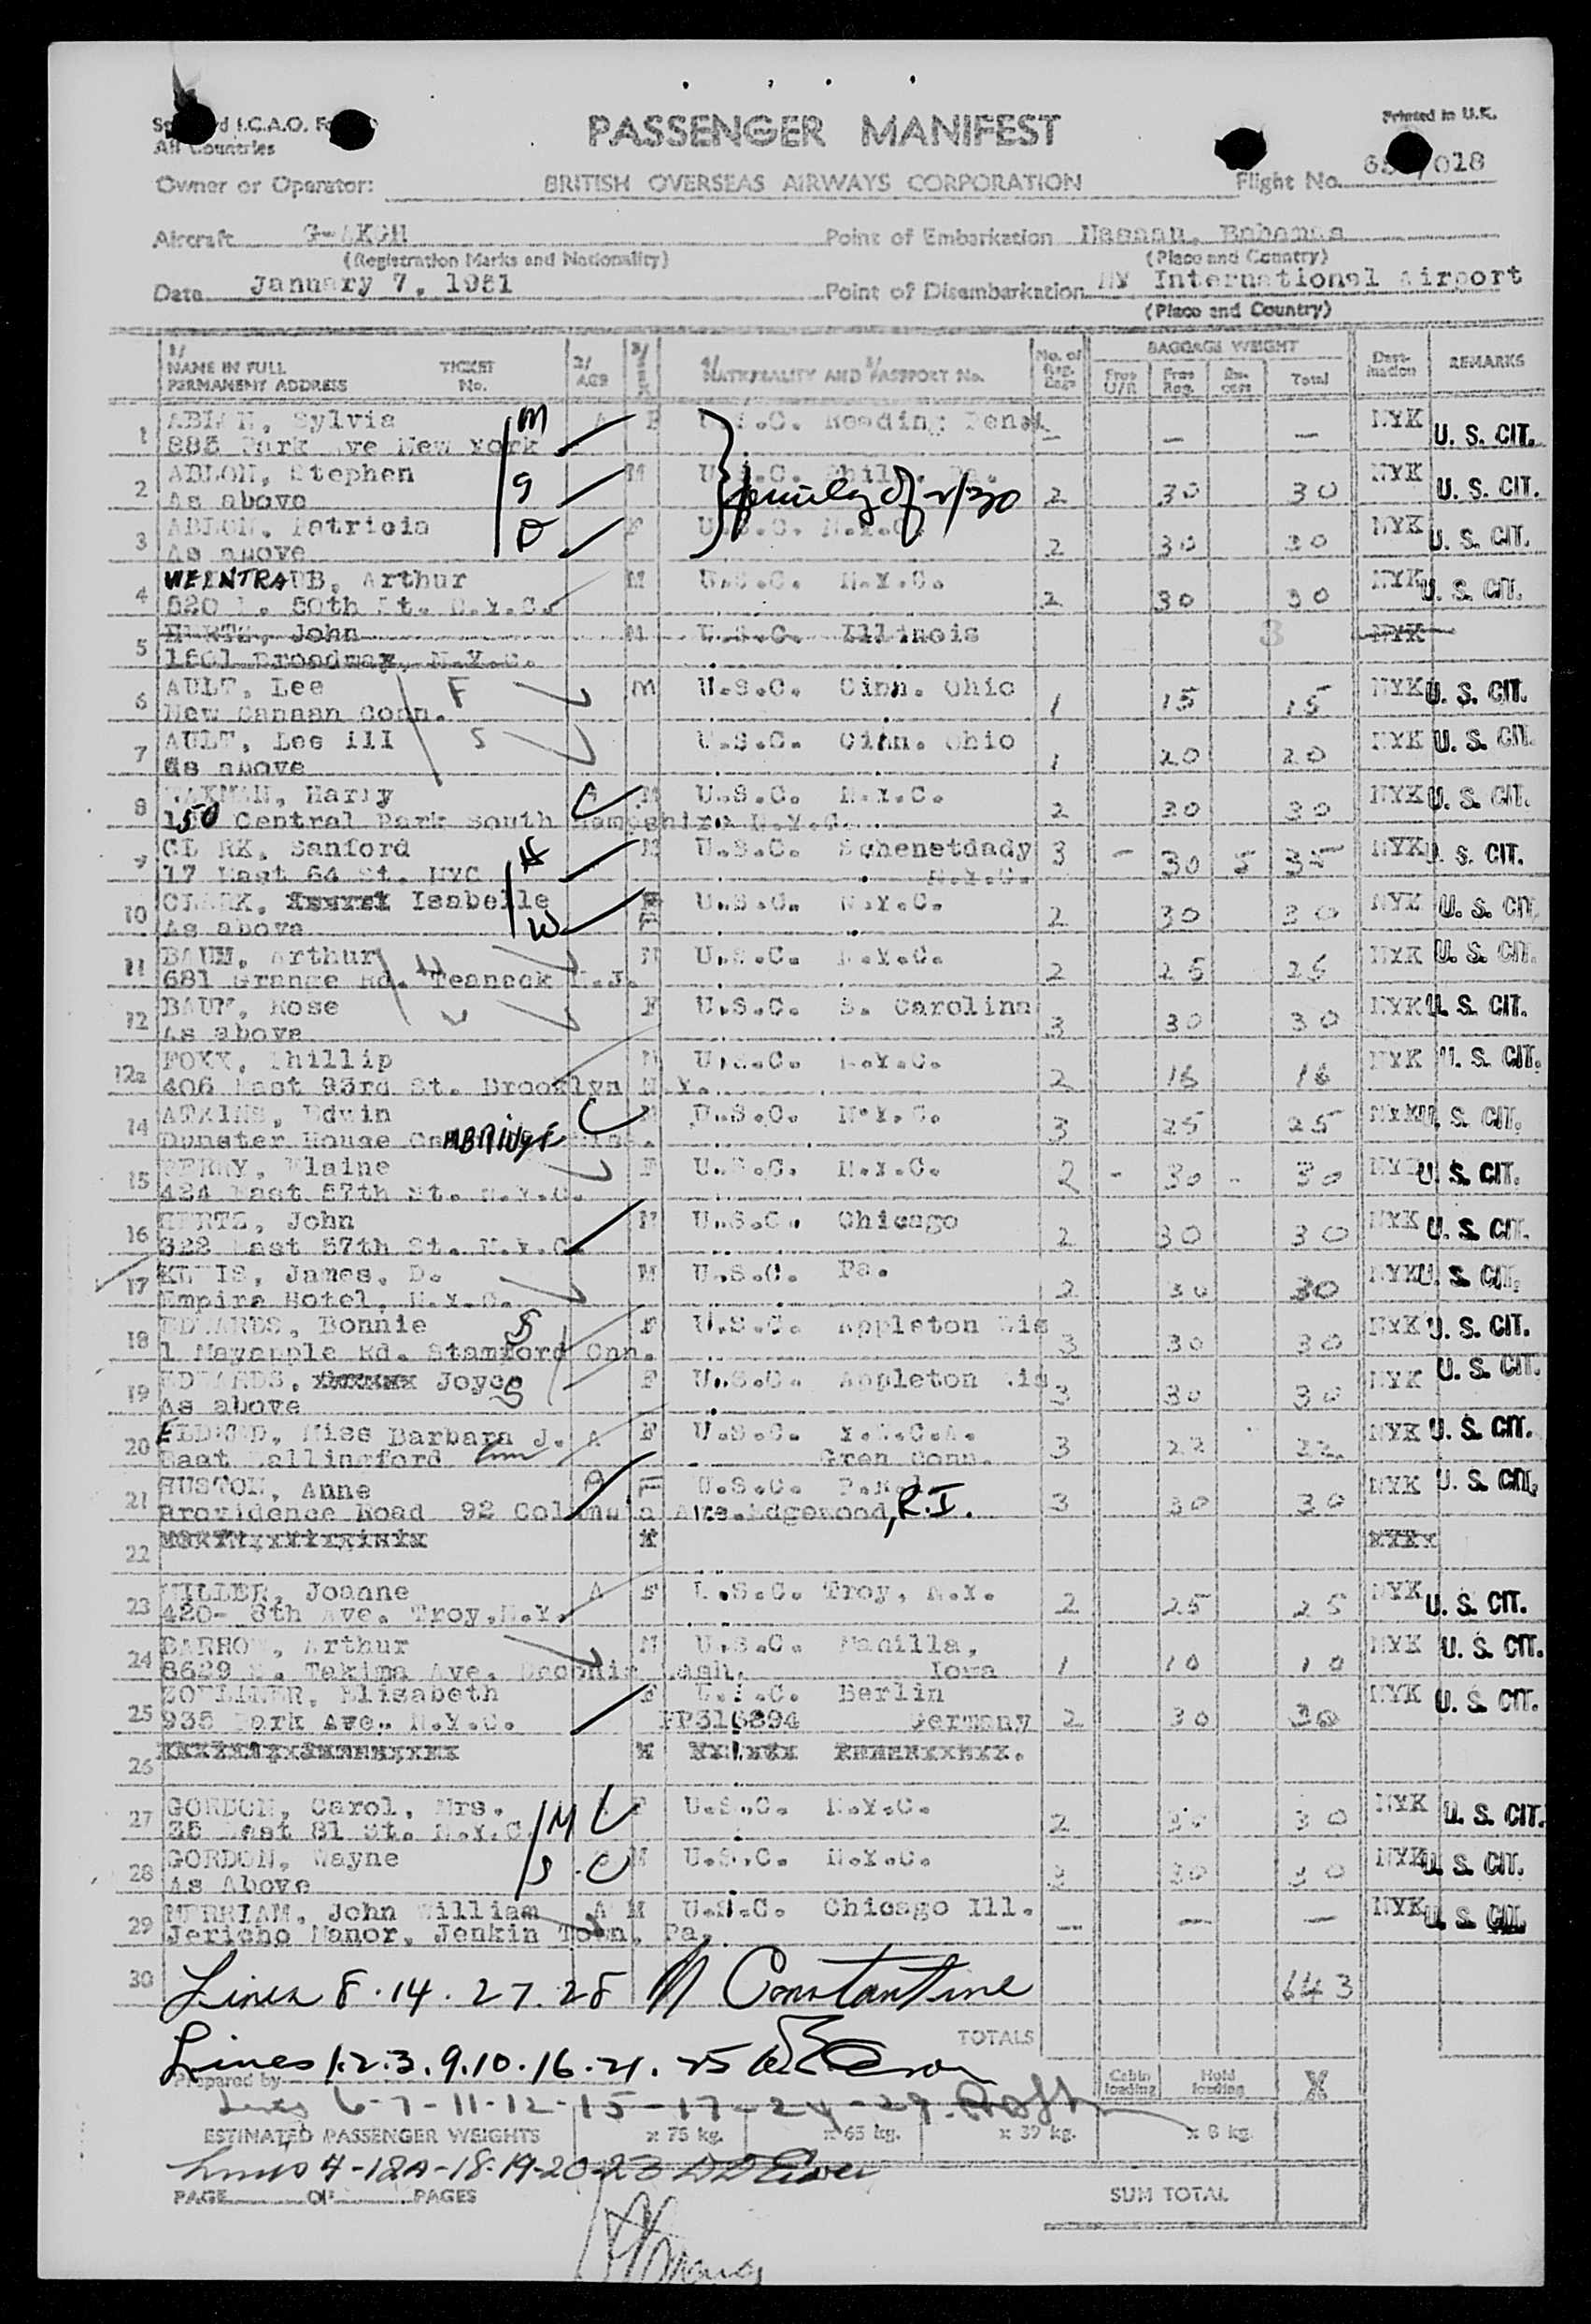 PASSENGER MANIFEST
Printed in U.K.
I.C.A.O.
All Countries
Owner or Operator: BRITISH OVERSEAS AIRWAYS CORPORATION Flight No. /018
Aircraft Point of Embarkation Nassau, Bahamas
(Registration Marks and Nationality) (Place and Country)
Date January 7, 1951 Point of Disembarkation NY International Airport
(Place and Country)
1/ NAME IN FULL PERMANENT ADDRESS TICKET No. 2/ AGE 3/ 4/ NATIONALITY AND 5/ PASSPORT No. No. of BAGGAGE WEIGHT Free U/R Free Reg. Total Destination REMARKS
1 Sylvia M A F U.S.C. Reading — — — NYK U. S. CIT.
885 Park Ave New York
2 ABLON, Stephen S M U.S.C. 2 30 30 NYK U. S. CIT.
As above family of
3 ABLON, Patricia D F U.S.C. N.Y.C. 2 30 30 NYK U. S. CIT.
As above
4 WEINTRAUB, Arthur M U.S.C. N.Y.C. 2 30 30 NYK U. S. CIT.
50th St. N.Y.C.
5 HERTZ, John M U.S.C. Illinois 3 NYK
Broadway, N.Y.C.
6 AULT, Lee F M U.S.C. Cinn. Ohio 1 15 15 NYK U. S. CIT.
New Canaan Conn.
7 AULT, Lee III S U.S.C. Cinn. Ohio 1 20 20 NYK U. S. CIT.
As above
8 Harry A M U.S.C. N.Y.C. 2 30 30 NYK U. S. CIT.
150 Central Park South Hampshire N.Y.C.
9 CLARK, Sanford H M U.S.C. Schenetdady 3 – 30 5 35 NYK U. S. CIT.
17 East 64 St. NYC N.Y.C.
10 CLARK, Isabelle F U.S.C. N.Y.C. 2 30 30 NYK U. S. CIT.
As above W
11 BAUM, Arthur H M U.S.C. N.Y.C. 2 25 25 NYK U. S. CIT.
681 Grange Rd. Teaneck N.J.
12 BAUM, Rose F U.S.C. S. Carolina 3 30 30 NYK U. S. CIT.
As above
12a FOXX, Phillip M U.S.C. N.Y.C. 2 16 16 NYK U. S. CIT.
406 East 93rd St. Brooklyn N.Y.
14 ATKINS, Edwin M U.S.C. N.Y.C. 3 25 25 NYK U. S. CIT.
Dunster House
15 Elaine F U.S.C. N.Y.C. 2 - 30 - 30 NYK U. S. CIT.
424 East 57th St. N.Y.C.
16 HERTZ, John M U.S.C. Chicago 2 30 30 NYK U. S. CIT.
322 East 57th St. N.Y.C.
17 James, D. M U.S.C. Pa. 2 30 30 NYK U. S. CIT.
Empire Hotel, N.Y.C.
18 EDWARDS, Bonnie S F U.S.C. Appleton Wis 3 30 30 NYK U. S. CIT.
1 Mayapple Rd. Stamford Cnn.
19 EDWARDS, Joyce S F U.S.C. Appleton Wis 3 30 30 NYK U. S. CIT.
As above
20 Miss Barbara J. A F U.S.C. 3 22 22 NYK U. S. CIT.
East Wallingford Conn Gren Conn.
21 HUSTON, Anne A F U.S.C. 3 30 30 NYK U. S. CIT.
Providence Road 92 Columbia Ave. Edgewood, R.I.
22
23 MILLER, Joanne A F U.S.C. Troy, N.Y. 2 25 25 NYK U. S. CIT.
420- 8th Ave. Troy, N.Y.
24 BARROW, Arthur M U.S.C. Manilla, 1 10 10 NYK U. S. CIT.
Ave. Wash. Iowa
25 ZOELLNER, Elisabeth F U.S.C. Berlin 2 30 30 NYK U. S. CIT.
935 Park Ave. N.Y.C. PP316894 Germany
26
27 GORDON, Carol, Mrs. M F U.S.C. N.Y.C. 2 30 30 NYK U. S. CIT.
35 East 81 St. N.Y.C.
28 GORDON, Wayne S M U.S.C. N.Y.C. 3 30 30 NYK U. S. CIT.
As Above
29 MERRIAM, John William A M U.S.C. Chicago Ill. — — — NYK U. S. CIT.
Jericho Manor, Jenkin Town, Pa.
30 Lines 8.14.27.28 N Constantine 643
TOTALS
Lines 1.2.3.9.10.16.21.25
Prepared by Cabin loading Hold loading X
Lines 6-7-11-12-15-17-24-29.
ESTIMATED PASSENGER WEIGHTS x 75 kg. x 65 kg. x 39 kg. x 8 kg.
Lines 4-12A-18-19-20-23
PAGE OF PAGES SUM TOTAL